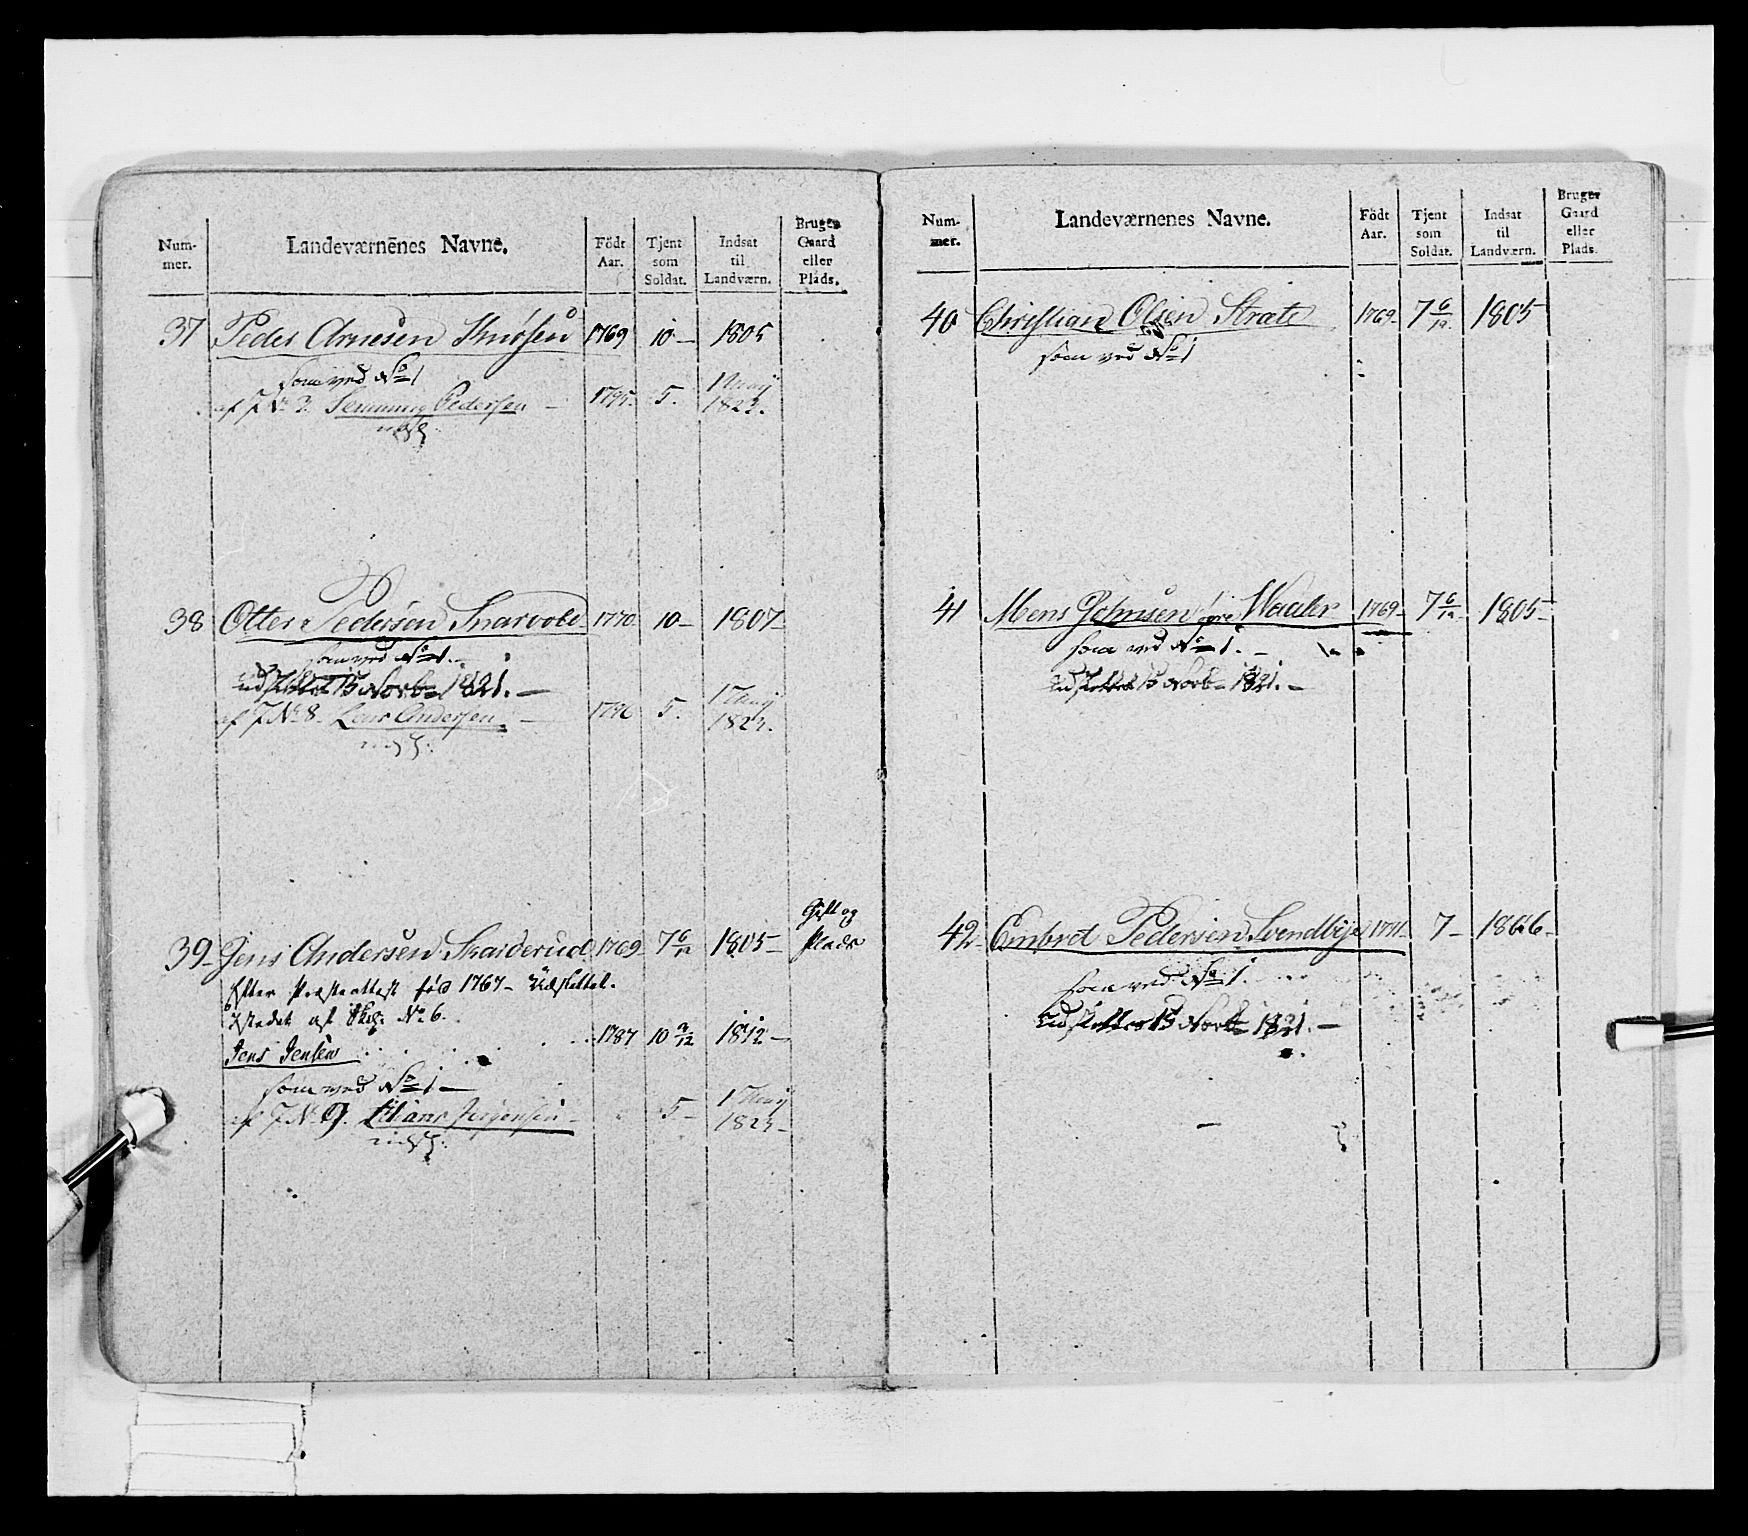 Num-
mer.
Landeværnenes Navne.
Födt
Aar.
Tjent
som
Soldat.
Indsat
til
Landværn.
Bruger
Gaard
eller
Plads.
37 Peder Arnesen 1769 10 – 1805
som ved No 1
af J No 3. Hemming Pedersen – 1795. 5. 1 Maij
1823.
38 Otter Pedersen Snarvold 1770 10 – 1807 –
som ved No 1. –
Udslettet 15 Novbr 1821. –
af J No 8. Lars Andersen. – 1796 5. 1 Maij
1823.
39 – Jens Andersen Skarderud 1769 – 7 6/12 1805 – Gift og
Plads
Efter Præsteattest fød 1767 – Udslettet.
Istedet af No 6.
Jens Jensen 1787 10 2/12 1812 –
som ved No 1 –
af J No 9. Hans Jørgensen – 5 – 1 Maij
1823 –
Num-
mer.
Landeværnenes Navne.
Födt
Aar.
Tjent
som
Soldat.
Indsat
til
Landværn.
Bruger
Gaard
eller
Plads.
40 Christian Olsen Strate 1769 – 7 6/12 1805
som ved No 1
41 Mons Johnsen øvre Waaler 1769 – 7 6/12 – 1805 –
som ved No 1. –
Udslettet 15 Novbr 1821. –
42 – Embret Pedersen Svendbye 1771 – 7 – 1806 –
som ved No 1.
Udslettet 15 Novbr 1821. –